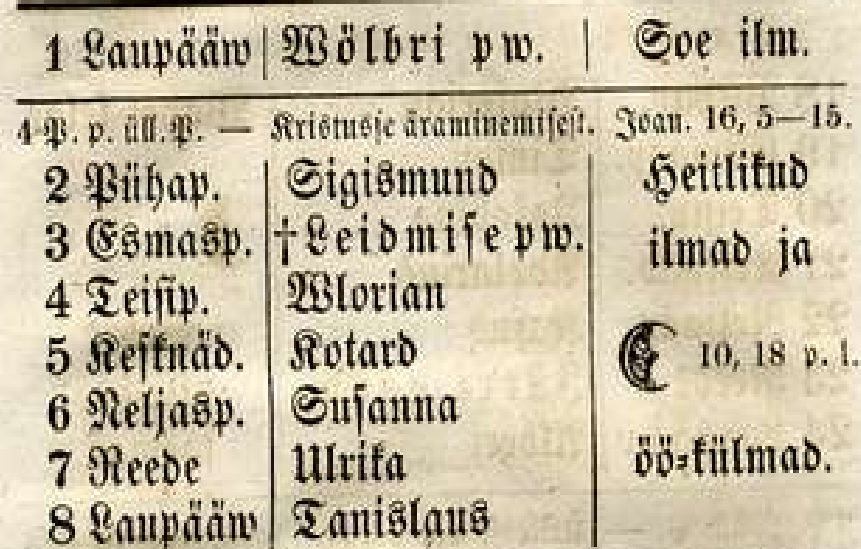 1 Laupääw Wölbri pw. Soe ilm.
4 P. p. üll. P. — Kristusse äraminemisest. Joan. 16, 5—15.
2 Pühap. Sigismund Heitlikud
3 Esmasp. †Leidmise pw. ilmad ja
4 Teisip. Wlorian
5 Kesknäd. Kotard 10, 18 p. l.
6 Neljasp. Susanna
7 Reede Ulrika öö-külmad.
8 Laupääw Tanislaus